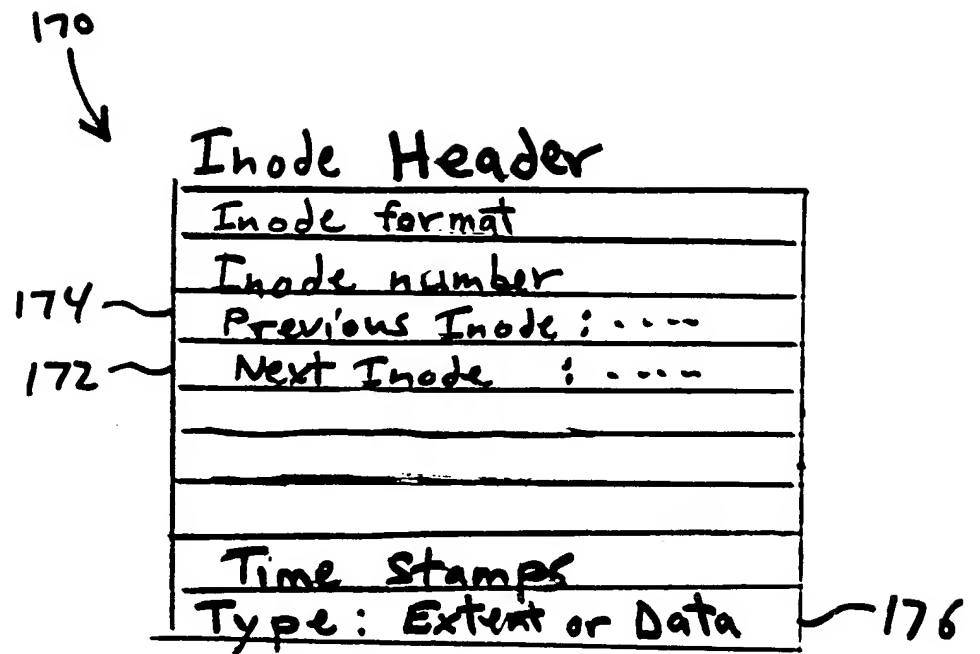 170
Inode Header
Inode format
Inode number
174 Previous Inode : ----
172 Next Inode : ----
Time Stamps
Type: Extent or Data 176